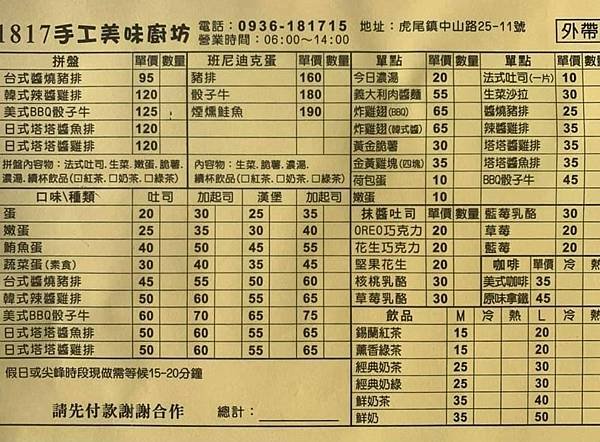 1817手工美味廚坊 電話：0936-181715 地址：虎尾鎮中山路25-11號 外帶
營業時間：06:00～14:00
拼盤 單價 數量
台式醬燒豬排 95
韓式辣醬雞排 120
美式BBQ骰子牛 125
日式塔塔醬魚排 120
日式塔塔醬雞排 120
拼盤內容物：法式吐司.生菜.嫩蛋.脆薯.
濃湯.續杯飲品(□紅茶.□奶茶.□綠茶)
班尼迪克蛋 單價 數量
豬排 160
骰子牛 180
煙燻鮭魚 190
內容物：生菜.脆薯.濃湯.
續杯飲品(□紅茶.□奶茶.□綠茶)
口味\種類 吐司 加起司 漢堡 加起司
蛋 20 30 25 35
嫩蛋 25 35 30 40
鮪魚蛋 40 50 45 55
蔬菜蛋(素食) 30 40 35 45
台式醬燒豬排 45 55 50 60
韓式辣醬雞排 50 60 55 65
美式BBQ骰子牛 60 70 65 75
日式塔塔醬魚排 50 60 55 65
日式塔塔醬雞排 50 60 55 65
假日或尖峰時段現做需等候15-20分鐘
請先付款謝謝合作 總計：
單點 單價 數量 單點 單價 數量
今日濃湯 20 法式吐司(一片) 10
義大利肉醬麵 55 生菜沙拉 30
炸雞翅(BBQ) 65 醬燒豬排 25
炸雞翅(韓式醬) 65 辣醬雞排 35
黃金脆薯 30 塔塔醬雞排 35
金黃雞塊(四塊) 35 塔塔醬魚排 35
荷包蛋 10 BBQ骰子牛 45
嫩蛋 10
抹醬吐司 單價 數量 藍莓乳酪 30
OREO巧克力 20 草莓 20
花生巧克力 20 藍莓 20
堅果花生 20 咖啡 單價 冷 熱
核桃乳酪 30 美式咖啡 35
草莓乳酪 30 原味拿鐵 45
飲品 M 冷 熱 L 冷 熱
錫蘭紅茶 15 20
薰香綠茶 15 20
經典奶茶 25 30
經典奶綠 25 30
鮮奶茶 35 40
鮮奶 35 50